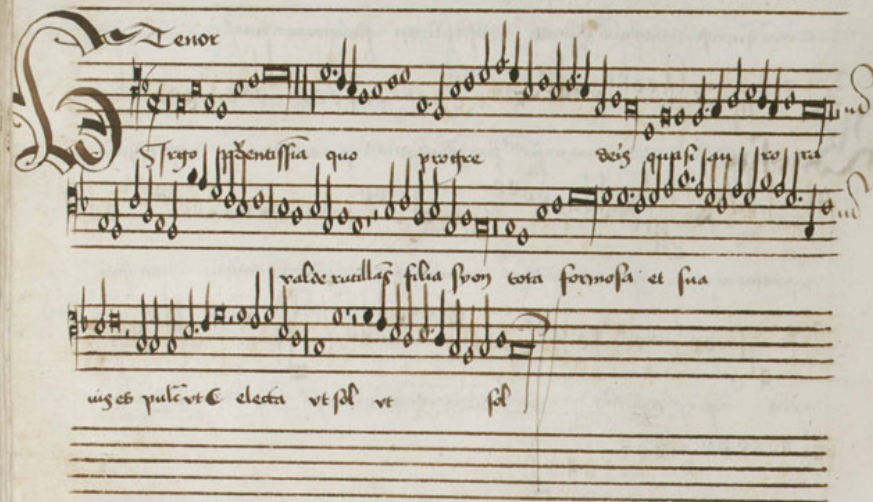 Tenor
Virgo prudentissima quo progre deris quasi au ro ra
valde rutilans filia syon tota formosa et sua
uis es pulcra vt C electa vt sol vt sol